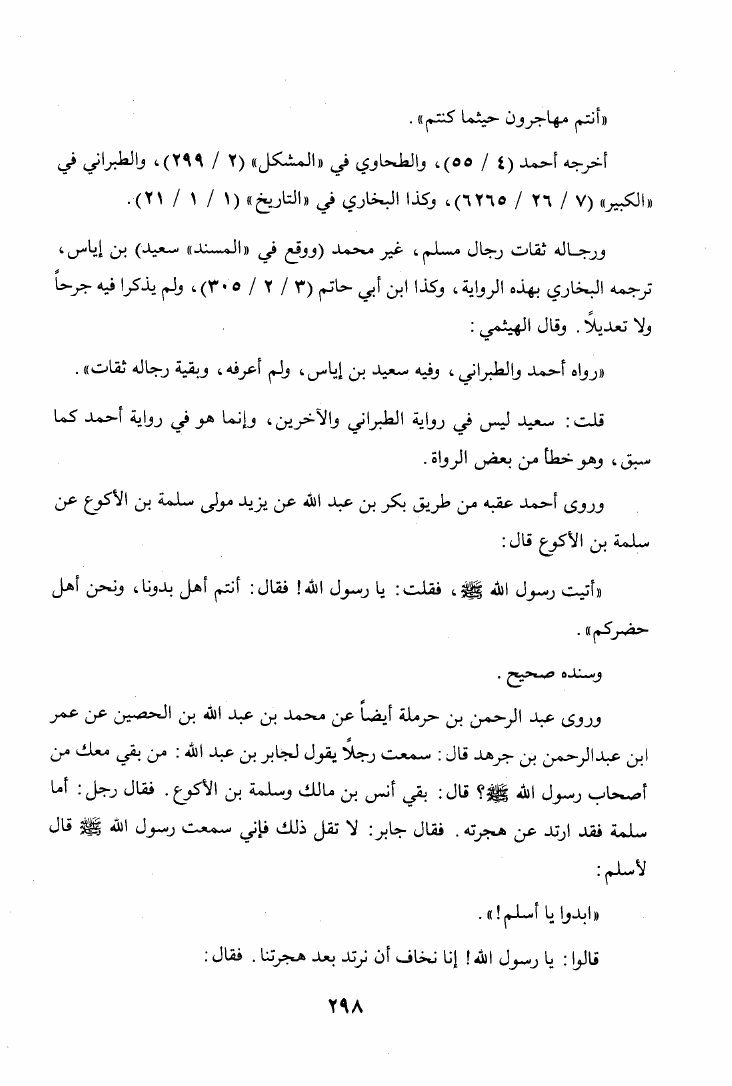 «أنتم مهاجرون حيثما كنتم».
أخرجه أحمد (٤ / ٥٥)، والطحاوي في «المشكل» (٢ / ٢٩٩)، والطبراني في
«الكبير» (٧ / ٢٦ / ٦٢٦٥)، وكذا البخاري في «التاريخ» (١ / ١ / ٢١).
ورجاله ثقات رجال مسلم، غير محمد (ووقع في «المسند» سعيد) بن إياس،
ترجمه البخاري بهذه الرواية، وكذا ابن أبي حاتم (٣ / ٢ / ٢٠٥)، ولم يذكرا فيه جرحاً
ولا تعديلًا. وقال الهيثمي:
«رواه أحمد والطبراني، وفيه سعيد بن إياس، ولم أعرفه، وبقية رجاله ثقات».
قلت: سعيد ليس في رواية الطبراني والآخرين، وإنما هو في رواية أحمد كما
سبق، وهو خطأ من بعض الرواة.
وروى أحمد عقبه من طريق بكر بن عبد الله عن يزيد مولى سلمة بن الأكوع عن
سلمة بن الأكوع قال:
«أتيت رسول الله ﷺ، فقلت: يا رسول الله! فقال: أنتم أهل بدونا، ونحن أهل
حضركم».
وسنده صحيح.
وروى عبد الرحمن بن حرملة أيضاً عن محمد بن عبد الله بن الحصين عن عمر
ابن عبدالرحمن بن جرهد قال: سمعت رجلًا يقول لجابر بن عبد الله: من بقي معك من
أصحاب رسول الله ﷺ؟ قال: بقي أنس بن مالك وسلمة بن الأكوع. فقال رجل: أما
سلمة فقد ارتد عن هجرته. فقال جابر: لا تقل ذلك فإني سمعت رسول الله ﷺ قال
لأسلم:
«ابدوا يا أسلم!».
قالوا: يا رسول الله! إنا نخاف أن نرتد بعد هجرتنا. فقال:
٢٩٨